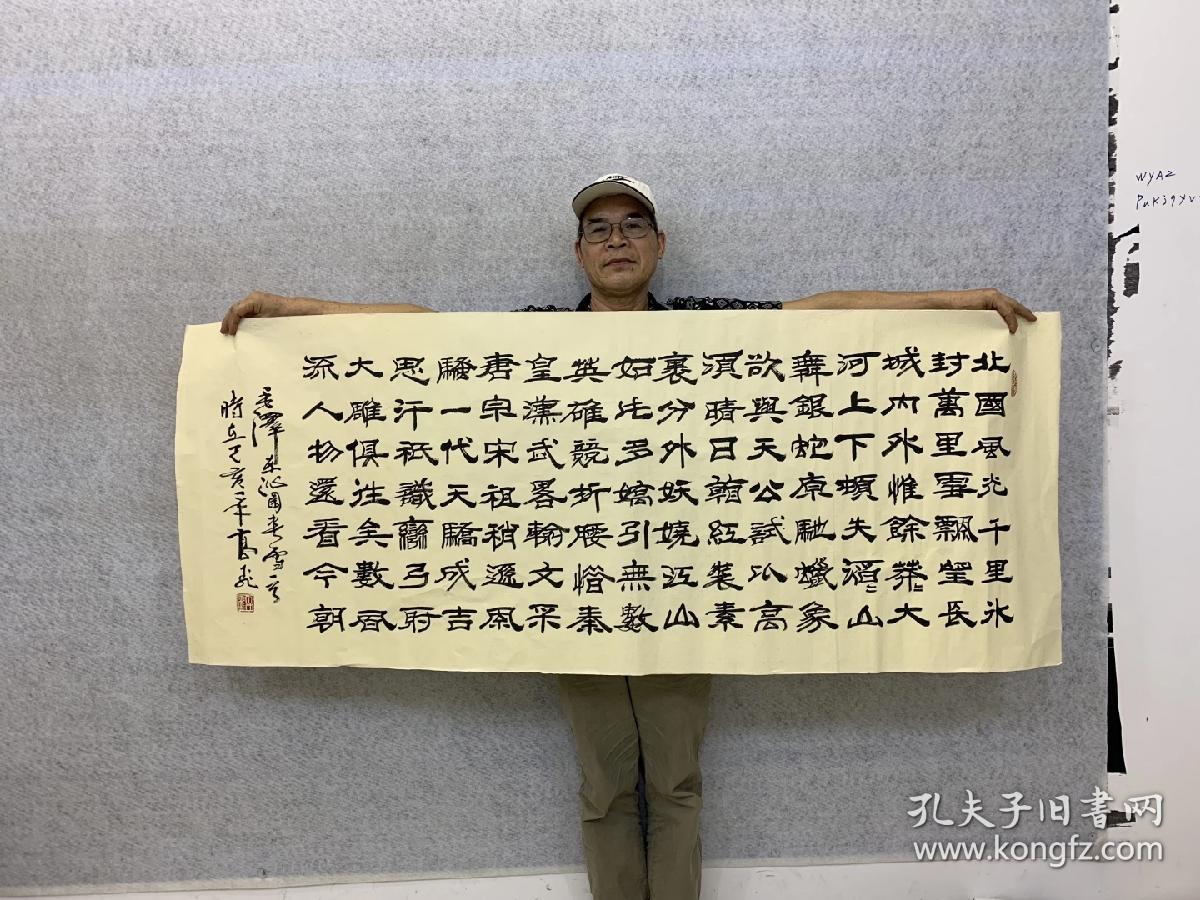 北國風光千里冰
封萬里雪飄望長
城内外惟餘莽〻大
河上下頓失滔〻山
舞銀蛇原馳蠟象
欲與天公試比高
須晴日看紅裝素
裹分外妖嬈江山
如此多嬌引無數
英雄競折腰惜秦
皇漢武畧輸文采
唐宗宋祖稍遜風
騷一代天驕成吉
思汗祇識彎弓射
大雕俱往矣數風
流人物還看今朝
毛澤東沁園春雪
時在己亥年高飛
WYAZ
孔夫子旧書网
www.kongfz.com